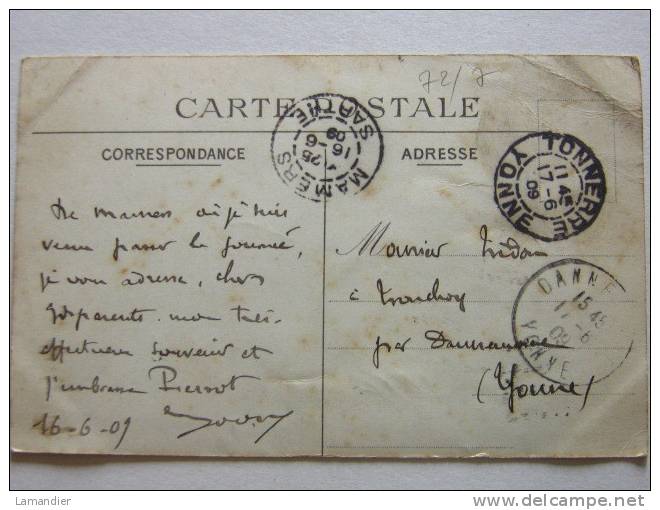 72/7
CARTE POSTALE
CORRESPONDANCE
ADRESSE
MAMERS SARTHE
16-6
09
TONNERRE YONNE
11 45
17-6
09
DANNE
15 45
09
YONNE
De mamers où je suis
venu passer la journée,
je vous adresse, chers
gds parents mon très
affectueux souvenir et
j'embrasse Pierrot
16-6-09
Monsieur
à Tronchoy
par
(Yonne)
Lamandier
delcampe.net